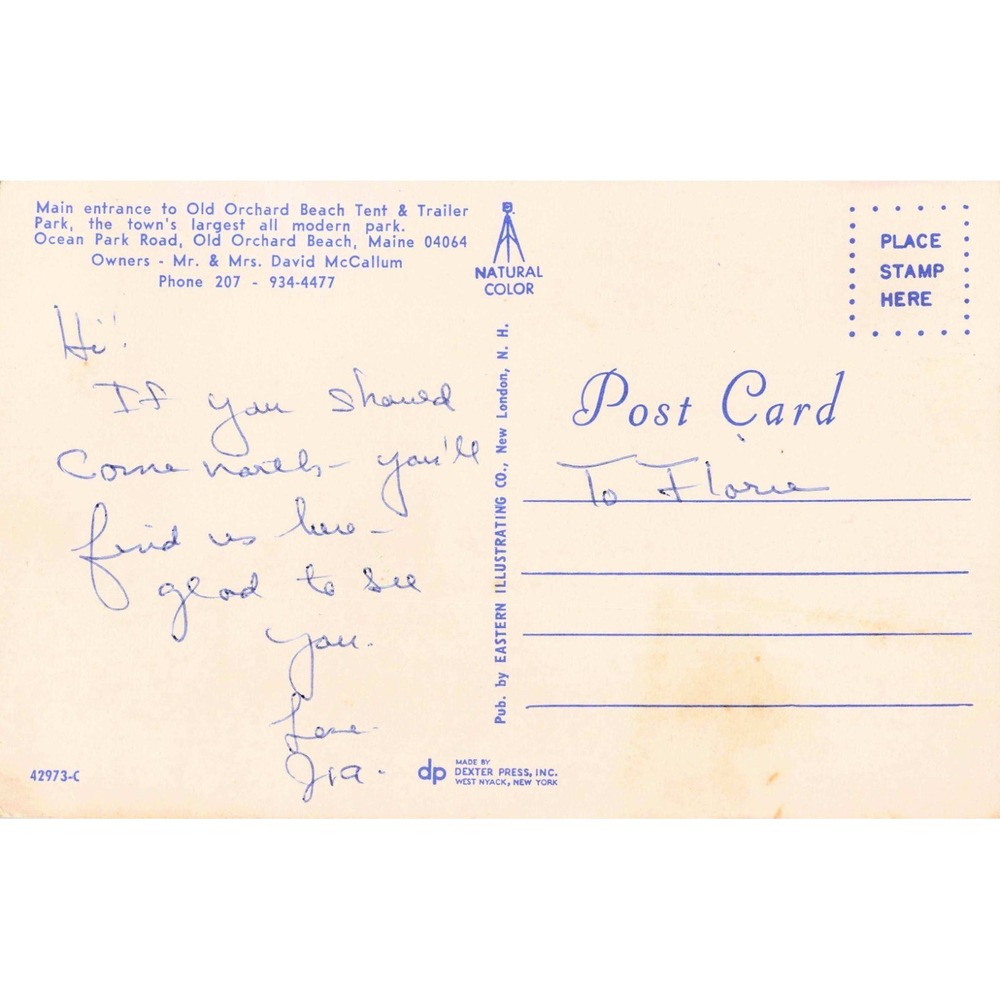 Main entrance to Old Orchard Beach Tent & Trailer
Park, the town's largest all modern park.
Ocean Park Road, Old Orchard Beach, Maine 04064
Owners - Mr. & Mrs. David McCallum
Phone 207 - 934-4477
NATURAL
COLOR
PLACE
STAMP
HERE
Hi!
If you should
come north - you'll
find us here -
glad to see
you.
Love
Ira.
Pub. by EASTERN ILLUSTRATING CO., New London, N. H.
Post Card
To Florie
42973-C
dp
MADE BY
DEXTER PRESS, INC.
WEST NYACK, NEW YORK